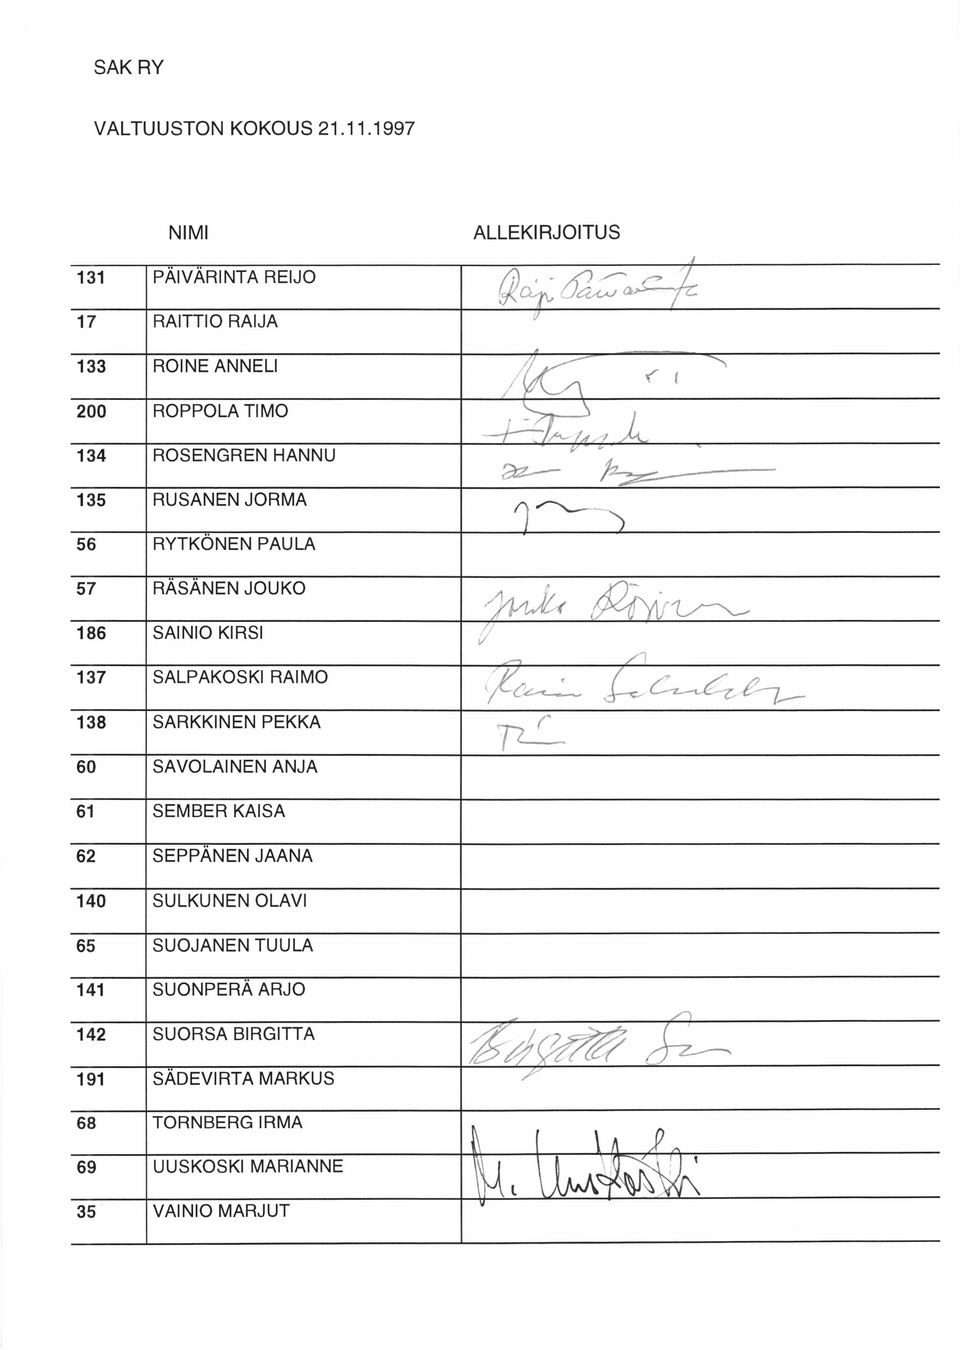 SAK RY
VALTUUSTON KOKOUS 21.11.1997
NIMI ALLEKIRJOITUS
131 PÄIVÄRINTA REIJO
17 RAITTIO RAIJA
133 ROINE ANNELI
200 ROPPOLA TIMO
134 ROSENGREN HANNU
135 RUSANEN JORMA
56 RYTKÖNEN PAULA
57 RÄSÄNEN JOUKO Jouko Räsänen
186 SAINIO KIRSI
137 SALPAKOSKI RAIMO
138 SARKKINEN PEKKA
60 SAVOLAINEN ANJA
61 SEMBER KAISA
62 SEPPÄNEN JAANA
140 SULKUNEN OLAVI
65 SUOJANEN TUULA
141 SUONPERÄ ARJO
142 SUORSA BIRGITTA Birgitta
191 SÄDEVIRTA MARKUS
68 TORNBERG IRMA
69 UUSKOSKI MARIANNE M. Uuskoski
35 VAINIO MARJUT